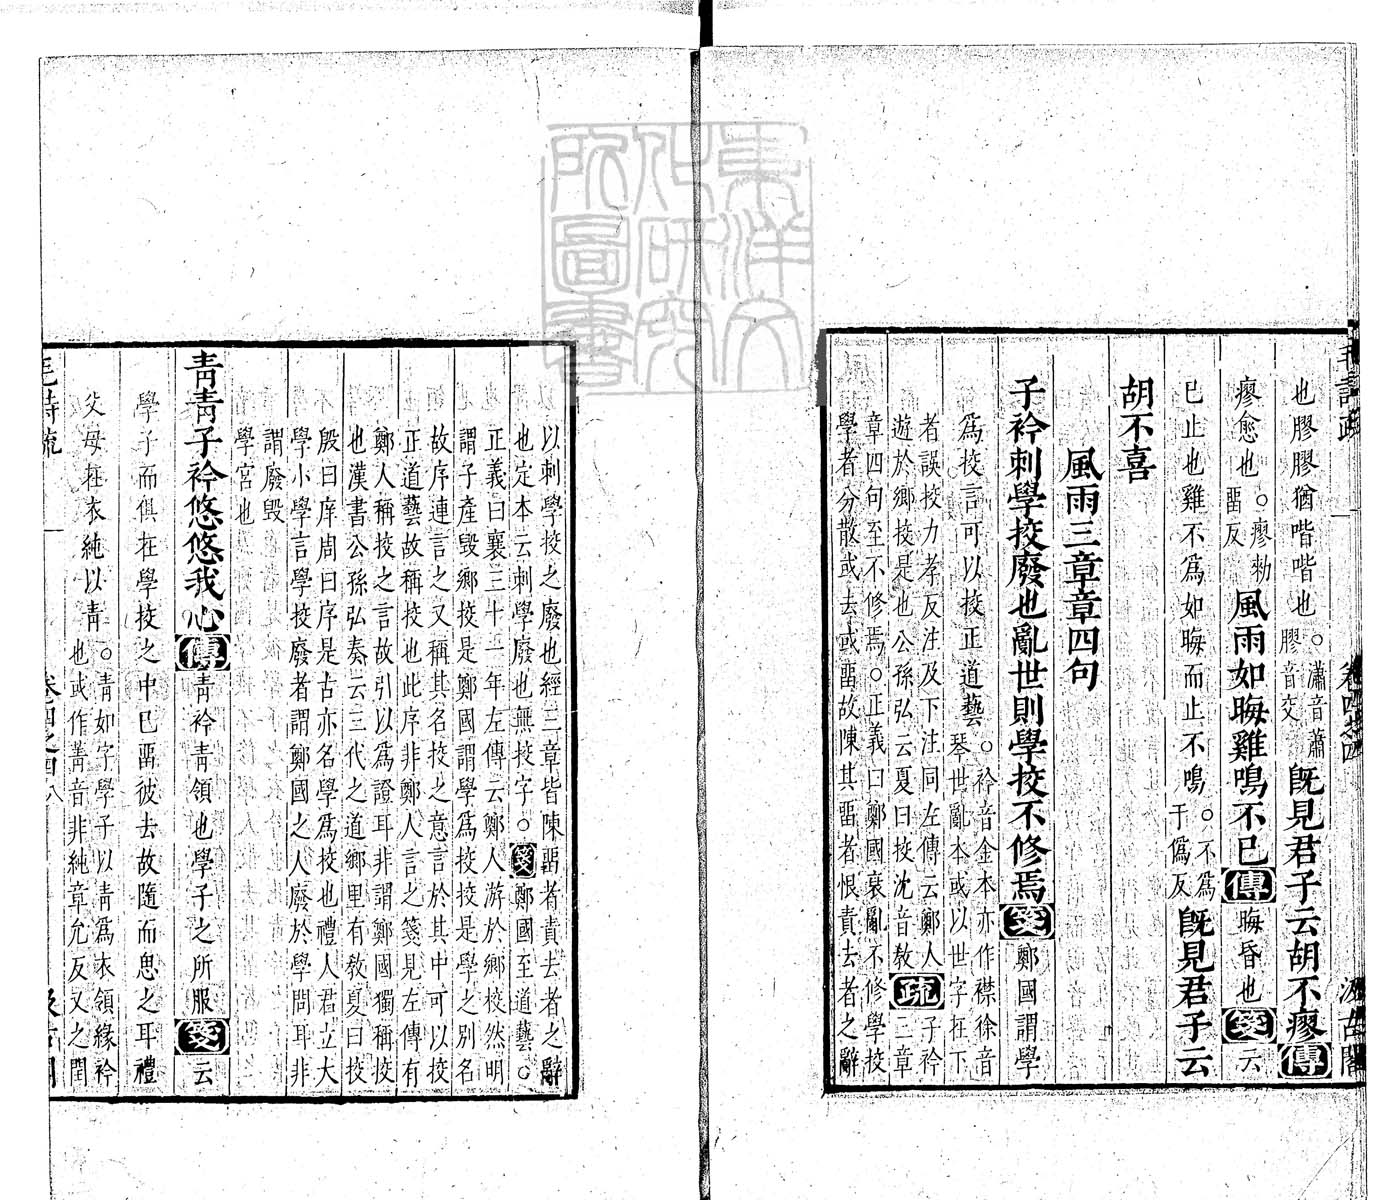 也膠膠猶喈喈也。瀟音蕭膠音交既見君子云胡不瘳傳
瘳愈也。瘳勑畱反風雨如晦雞鳴不已傳晦昏也箋云
已止也雞不爲如晦而止不鳴。不爲于僞反既見君子云
胡不喜
風雨三章章四句
子衿刺學校廢也亂世則學校不修焉箋鄭國謂學
爲校言可以校正道藝。衿音金本亦作襟徐音琴世亂本或以世字在下
者誤校力孝反注及下注同左傳云鄭人
遊於鄉校是也公孫弘云夏曰校沈音教疏子衿二章
章四句至不修焉。正義曰鄭國衰亂不修學校
學者分散或去或畱故陳其畱者恨責去者之辭
以刺學校之廢也經三章皆陳畱者責去者之辭
也定本云刺學廢也無校字。箋鄭國至道藝。
正義曰襄三十一年左傳云鄭人游於鄉校然明
謂子產毀鄉校是鄭國謂學爲校校是學之別名
故序連言之又稱其名校之意言於其中可以校
正道藝故稱校也此序非鄭人言之箋見左傳有
鄭人稱校之言故引以爲證耳非謂鄭國獨稱校
也漢書公孫弘奏云三代之道鄉里有教夏曰校
殷曰庠周曰序是古亦名學爲校也禮人君立大
學小學言學校廢者謂鄭國之人廢於學問耳非
謂廢毀
學宮也
青青子衿悠悠我心傳青衿青領也學子之所服箋云
學子而俱在學校之中已畱彼去故隨而思之耳禮
父母在衣純以青。青如字學子以青爲衣領緣衿也或作菁音非純章允反又之閏
毛詩疏 卷四之四 八